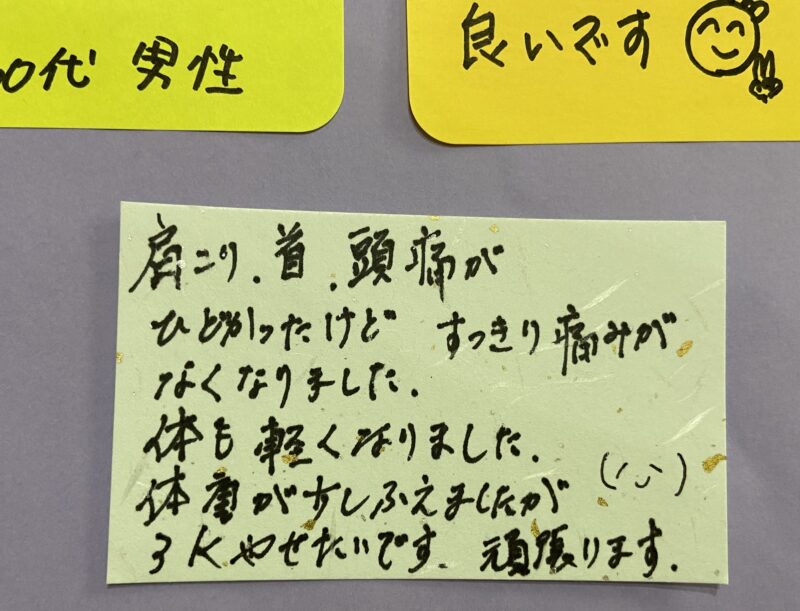 0代 男性
良いです
肩こり.首.頭痛が
ひどかったけど すっきり痛みが
なくなりました.
体も軽くなりました.
体重が少しふえましたが
3Kやせたいです. 頑張ります.